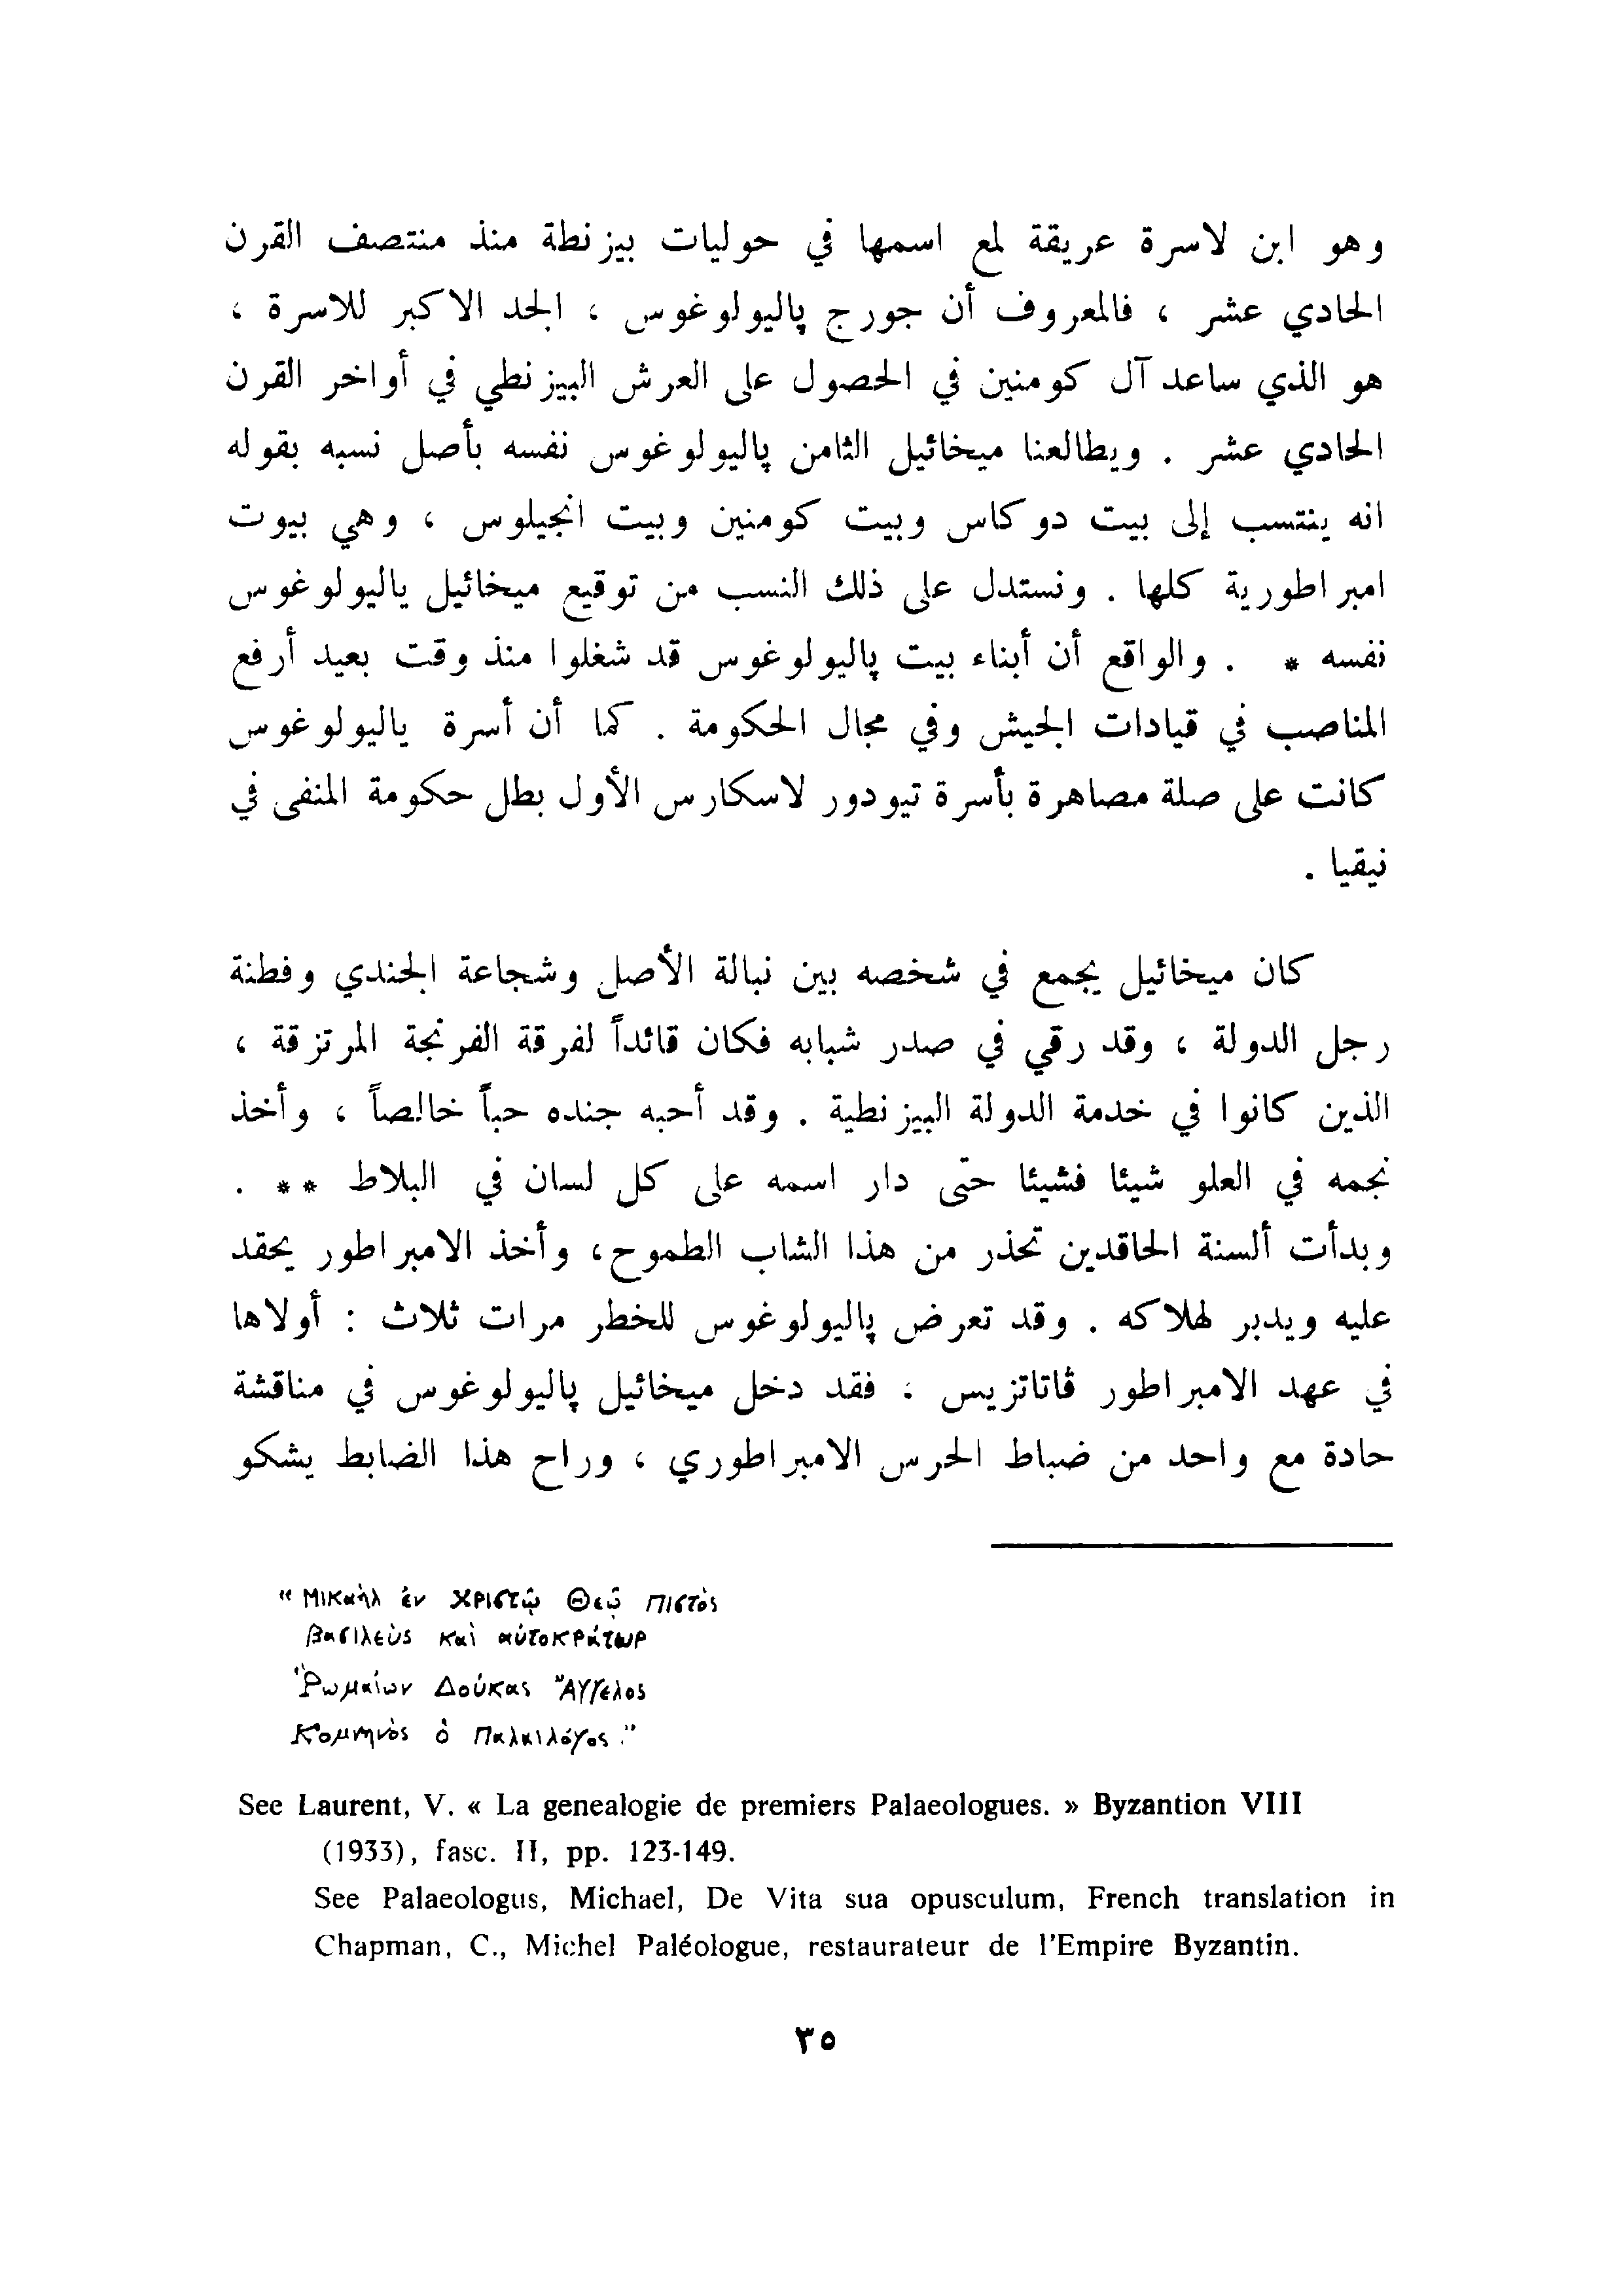 وهو ابن لاسرة عريقة لمع اسمها في حوليات بيزنطة منذ منتصف القرن
الحادي عشر ، فالمعروف أن جورج پاليولوغوس ، الجد الاكبر للاسرة ،
هو الذي ساعد آل كومنين في الحصول على العرش البيزنطي في أواخر القرن
الحادي عشر . ويطالعنا ميخائيل الثامن پاليولوغوس نفسه بأصل نسبه بقوله
انه ينتسب إلى بيت دوكاس وبيت كومنين وبيت انجيلوس ، وهي بيوت
امبراطورية كلها . ونستدل على ذلك النسب من توقيع ميخائيل ياليولوغوس
نفسه * . والواقع أن أبناء بيت پاليولوغوس قد شغلوا منذ وقت بعيد أرفع
المناصب في قيادات الجيش وفي مجال الحكومة . كما أن أسرة ياليولوغوس
كانت على صلة مصاهرة بأسرة تيودور لاسكارس الأول بطل حكومة المنفى في
نيقيا .
كان ميخائيل يجمع في شخصه بين نبالة الأصل وشجاعة الجندي وفطنة
رجل الدولة ، وقد رقي في صدر شبابه فكان قائداً لفرقة الفرنجة المرتزقة ،
الذين كانوا في خدمة الدولة البيزنطية . وقد أحبه جنده حباً خالصاً ، وأخذ
نجمه في العلو شيئا فشيئا حتى دار اسمه على كل لسان في البلاط ** .
وبدأت ألسنة الحاقدين تحذر من هذا الشاب الطموح، وأخذ الامبراطور يحقد
عليه ويدبر لهلاكه . وقد تعرض پاليولوغوس للخطر مرات ثلاث : أولاها
في عهد الامبراطور ڤاتاتزيس : فقد دخل ميخائيل پاليولوغوس في مناقشة
حادة مع واحد من ضباط الحرس الامبراطوري ، وراح هذا الضابط يشكو
“ Μικαὴλ ἐν Χριστῷ Θεῷ πιστὸς
βασιλεὺς καὶ αὐτοκράτωρ
Ῥωμαίων Δούκας Ἄγγελος
Κομνηνὸς ὁ Παλαιλόγος.”
See Laurent, V. « La genealogie de premiers Palaeologues. » Byzantion VIII
(1933), fasc. II, pp. 123-149.
See Palaeologus, Michael, De Vita sua opusculum, French translation in
Chapman, C., Michel Paléologue, restaurateur de l'Empire Byzantin.
٣٥